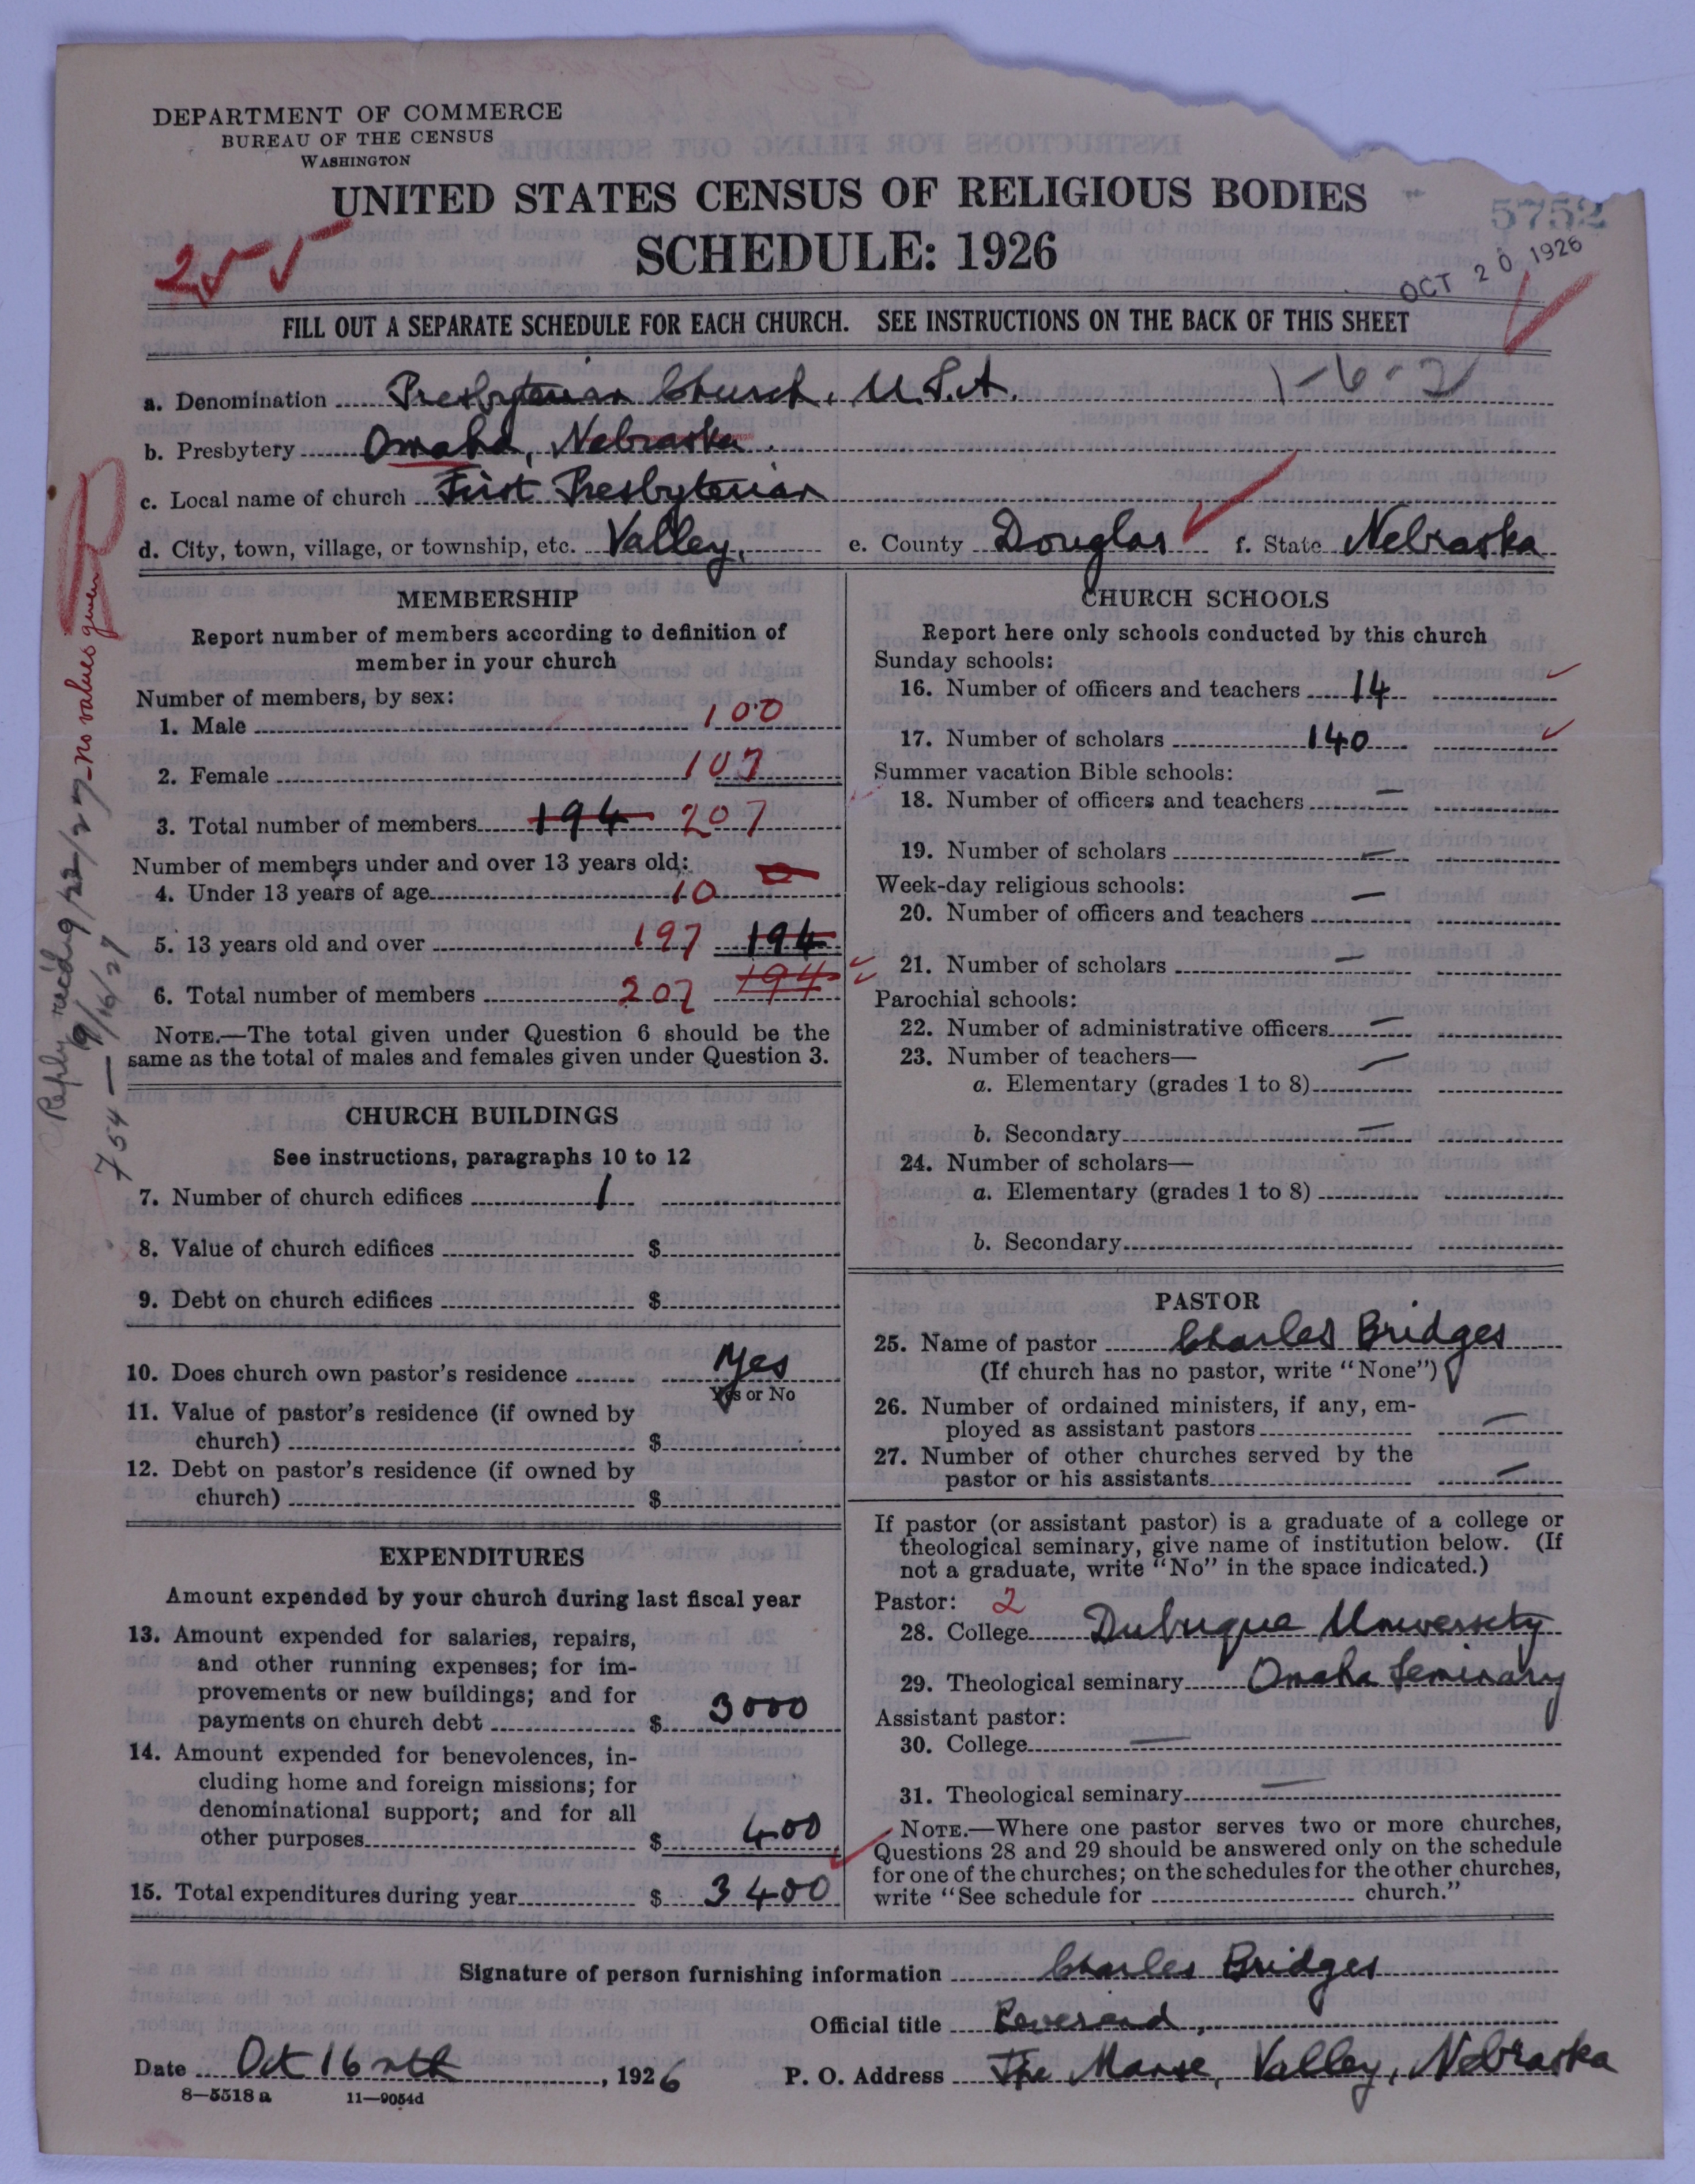 DEPARTMENT OF COMMERCE
BUREAU OF THE CENSUS
WASHINGTON
UNITED STATES CENSUS OF RELIGIOUS BODIES
SCHEDULE: 1926
5752
OCT 20 1926
255
FILL OUT A SEPARATE SCHEDULE FOR EACH CHURCH. SEE INSTRUCTIONS ON THE BACK OF THIS SHEET
1-6-2
a. Denomination Presbyterian Church, U.S.A.
b. Presbytery Omaha, Nebraska.
c. Local name of church First Presbyterian
d. City, town, village, or township, etc. Valley, e. County Douglas f. State Nebraska
MEMBERSHIP
Report number of members according to definition of
member in your church
Number of members, by sex:
1. Male 100
2. Female 107
3. Total number of members 194 207
Number of members under and over 13 years old:
4. Under 13 years of age 10 0
5. 13 years old and over 197 194
6. Total number of members 207 194
NOTE.—The total given under Question 6 should be the
same as the total of males and females given under Question 3.
CHURCH BUILDINGS
See instructions, paragraphs 10 to 12
7. Number of church edifices 1
8. Value of church edifices $
9. Debt on church edifices $
10. Does church own pastor's residence Yes
Yes or No
11. Value of pastor's residence (if owned by
church) $
12. Debt on pastor's residence (if owned by
church) $
EXPENDITURES
Amount expended by your church during last fiscal year
13. Amount expended for salaries, repairs,
and other running expenses; for im-
provements or new buildings; and for
payments on church debt $ 3000
14. Amount expended for benevolences, in-
cluding home and foreign missions; for
denominational support; and for all
other purposes $ 400
15. Total expenditures during year $ 3400
CHURCH SCHOOLS
Report here only schools conducted by this church
Sunday schools:
16. Number of officers and teachers 14
17. Number of scholars 140
Summer vacation Bible schools:
18. Number of officers and teachers —
19. Number of scholars —
Week-day religious schools:
20. Number of officers and teachers —
21. Number of scholars —
Parochial schools:
22. Number of administrative officers —
23. Number of teachers— —
a. Elementary (grades 1 to 8)
b. Secondary —
24. Number of scholars—
a. Elementary (grades 1 to 8)
b. Secondary
PASTOR
25. Name of pastor Charles Bridges
(If church has no pastor, write "None")
26. Number of ordained ministers, if any, em-
ployed as assistant pastors —
27. Number of other churches served by the
pastor or his assistants —
If pastor (or assistant pastor) is a graduate of a college or
theological seminary, give name of institution below. (If
not a graduate, write "No" in the space indicated.)
Pastor: 2
28. College Dubuque University
29. Theological seminary Omaha Seminary
Assistant pastor:
30. College —
31. Theological seminary —
NOTE.—Where one pastor serves two or more churches,
Questions 28 and 29 should be answered only on the schedule
for one of the churches; on the schedules for the other churches,
write "See schedule for church."
Signature of person furnishing information Charles Bridges
Official title Reverend,
Date Oct 16 nth, 1926 P. O. Address The Manse, Valley, Nebraska
8—5518 a 11—9054d
Reply rec'd 9/22/27 — No values given
754 — 9/16/27